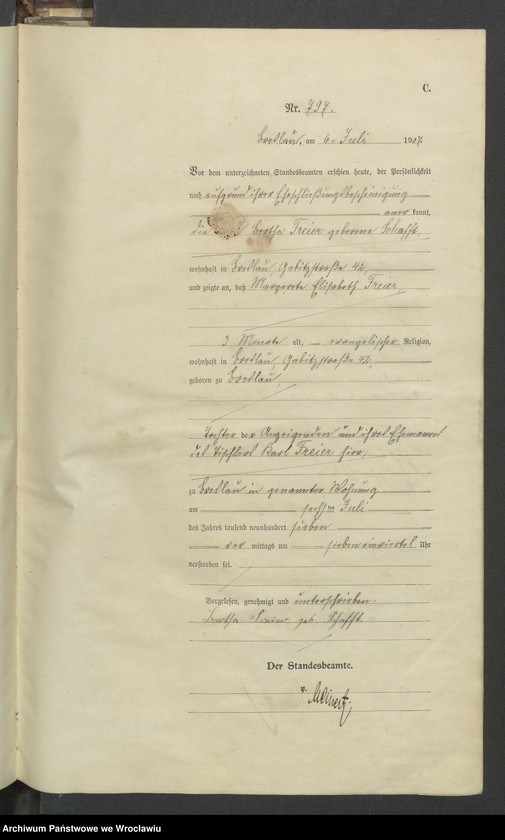 C.
Nr. 797.
Breslau, am 6. Juli 1907.
Vor dem unterzeichneten Standesbeamten erschien heute, der Persönlichkeit
nach aufgrund ihrer Eheschließungsbescheinigung
aner kannt,
die Bertha Freier geborene Schafft,
wohnhaft in Breslau, Gabitzstraße 42,
und zeigte an, daß Margarete Elisabeth Freier,
3 Monate alt, evangelischer Religion,
wohnhaft in Breslau, Gabitzstraße 42,
geboren zu Breslau,
Tochter der Anzeigenden und ihres Ehemannes
des Tischlers Karl Freier hier,
zu Breslau in genannter Wohnung
am sechsten Juli
des Jahres tausend neunhundert sieben
vor mittags um sieben einviertel Uhr
verstorben sei.
Vorgelesen, genehmigt und unterschrieben.
Bertha Freier geb. Schafft
Der Standesbeamte.
Archiwum Państwowe we Wrocławiu